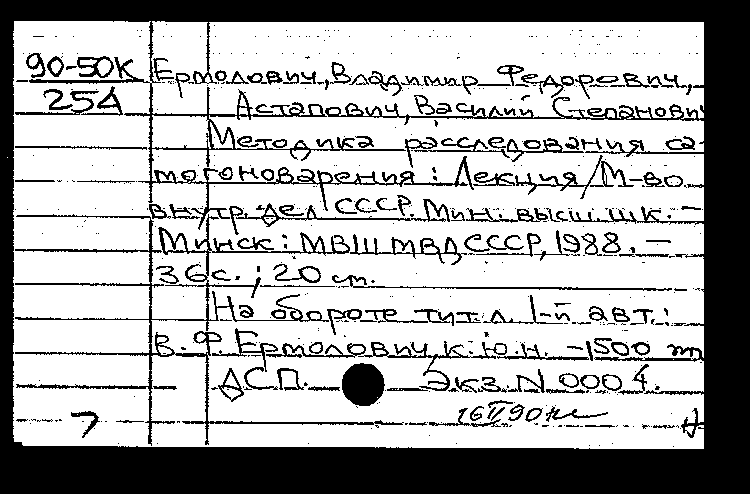 90-50К Ермолович, Владимир Федорович,
254 Астапович, Василий Степанович
Методика расследования са-
могоноварения : Лекция / М-во
внутр. дел СССР. Мин. высш. шк. –
Минск : МВШ МВД СССР, 1988. –
36 с. ; 20 см.
На обороте тит. л. 1-й авт.:
В. Ф. Ермолович, к. ю. н. – 1500
ДСП. Экз. N 0004.
7 16 II 90